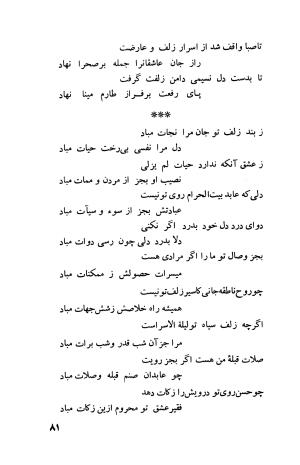 تاصبا واقف شد از اسرار زلف و عارضت
راز جان عاشقانرا جمله برصحرا نهاد
تا بدست دل نسیمی دامن زلفت گرفت
پای رفعت برفراز طارم مینا نهاد
***
ز بند زلف تو جان مرا نجات مباد
دل مرا نفسی بی‌رخت حیات مباد
ز عشق آنکه ندارد حیات لم یزلی
نصیب او بجز از مردن و ممات مباد
دلی‌که عابد بیت‌الحرام روی تونیست
عبادتش بجز از سوء و سیآت مباد
دوای درد دل خود بدرد اگر نکنی
دلا بدرد دلی چون رسی دوات مباد
بجز وصال تو ما را اگر مرادی هست
میسرات حصولش ز ممکنات مباد
چوروح‌ناطقه‌جانی‌کاسیرزلف‌تونیست
همیشه راه خلاصش زشش‌جهات مباد
اگرچه زلف سیاه تولیلة الاسراست
مرا جز آن شب قدر وشب برات مباد
صلات قبلهٔ من هست اگر بجز رویت
چو عابدان صنم قبله وصلات مباد
چوحسن‌روی‌تو درویش‌را زکات دهد
فقیرعشق تو محروم ازین زکات مباد
۸۱